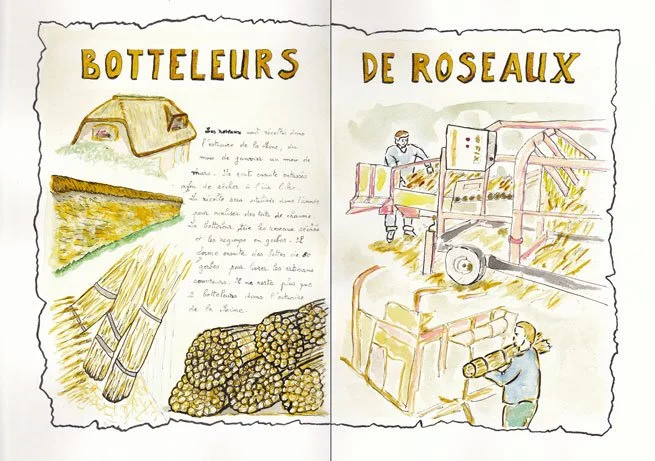 BOTTELEURS DE ROSEAUX
Les roseaux sont récoltés dans
l'estuaire de la Seine, du
mois de janvier au mois de
mars. Ils sont ensuite entassés
afin de sécher à l'air libre.
La récolte sera utilisée dans l'année
pour réaliser des toits de chaume.
Le botteleur trie les roseaux séchés
et les regroupe en gerbes. Il
forme ensuite des bottes de 80
gerbes pour livrer les artisans
couvreurs. Il ne reste plus que
2 botteleurs dans l'estuaire
de la Seine.